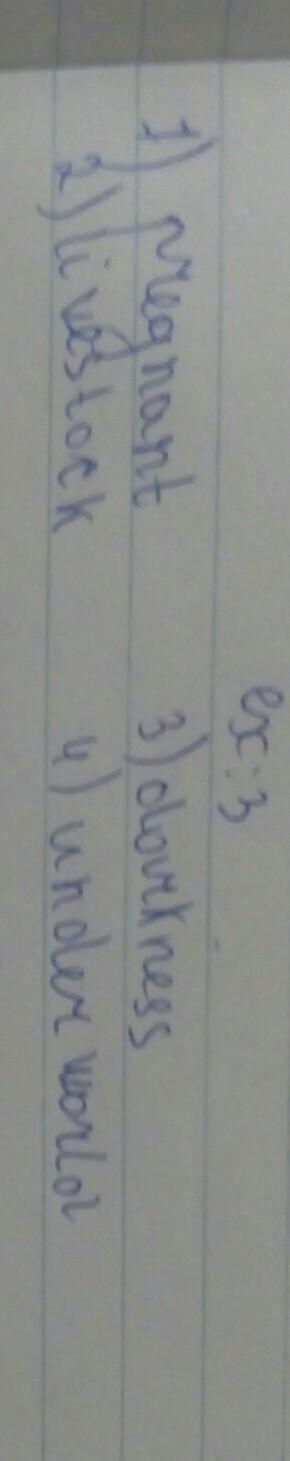 ex: 3
1) pregnant 3) darkness
2) livestock 4) underworld